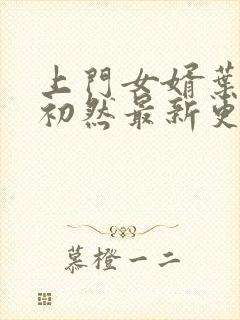 上門女婿葉
初然最新更
慕橙一二